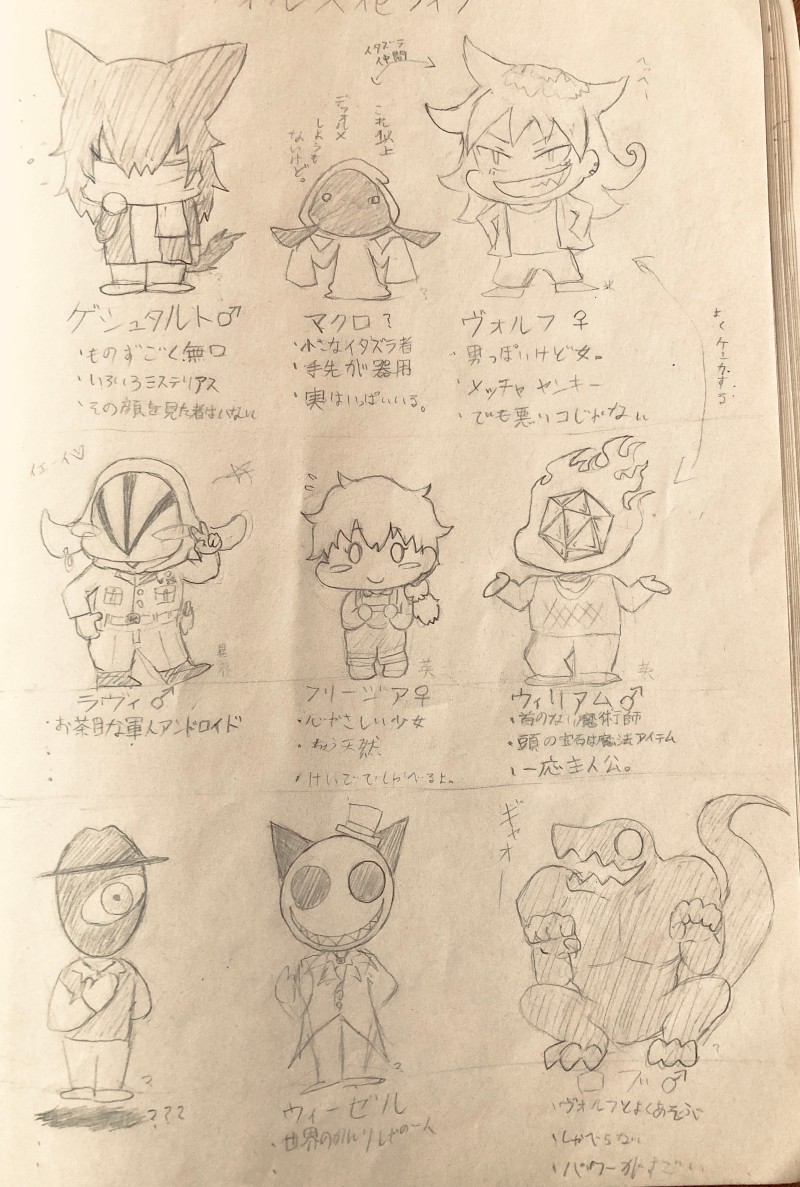 イタズラ
仲間
これ以上
デフォルメ
しようも
ないけど。
ヘッヘー
ゲシュタルト♂
・ものすごく無口
・いろいろミステリアス
・その顔を見た者はいない
マクロ ?
・小さなイタズラ者
・手先が器用
・実はいっぱいいる。
ヴォルフ ♀
・男っぽいけど女。
・メッチャヤンキー
・でも悪いコじゃない
よくケンカする
イエーイ♡
ラヴィ♂
・お茶目な軍人アンドロイド
フリージア♀
・心やさしい少女
・天然
英
ウィリアム♂
・首のない魔術師
・頭の宝石は魔法アイテム
・一応主人公。
???
ウィーゼル
ギャオー
ロブ♂
・ヴォルフとよくあそぶ
・しゃべらない
・パワーがすごい